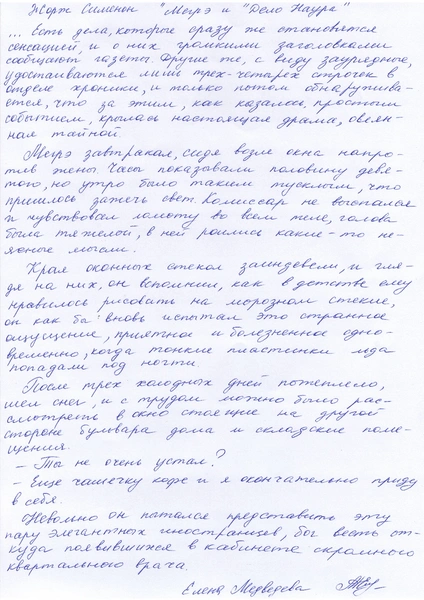 Жорж Сименон "Мегрэ и "Дело Наура"
... Есть дела, которые сразу же становятся
сенсацией, и о них громкими заголовками
сообщают газеты. Другие же, с виду заурядные,
удостаиваются лишь трех-четырех строчек в
отделе хроники, и только потом обнаружива-
ется, что за этим, как казалось, простым
событием, крылась настоящая драма, овеян-
ная тайной.
Мегрэ завтракал, сидя возле окна напро-
тив жены. Часы показывали половину девя-
того, но утро было таким тусклым, что
пришлось зажечь свет. Комиссар не выспался
и чувствовал ломоту во всем теле, голова
была тяжелой, в ней роились какие-то не-
ясные мысли.
Края оконных стекол заиндевели, и гля-
дя на них, он вспомнил, как в детстве ему
нравилось рисовать на морозном стекле,
он как бы вновь испытал это странное
ощущение, приятное и болезненное одно-
временно, когда тонкие пластинки льда
попадали под ногти.
После трех холодных дней потеплело,
шел снег, и с трудом можно было рас-
смотреть в окно стоящие на другой
стороне бульвара дома и складские поме-
щения.
- Ты не очень устал?
- Еще чашечку кофе и я окончательно приду
в себя.
Невольно он пытался представить эту
пару элегантных иностранцев, бог весть от-
куда появившихся в кабинете скромного
квартального врача.
Елена Медведева